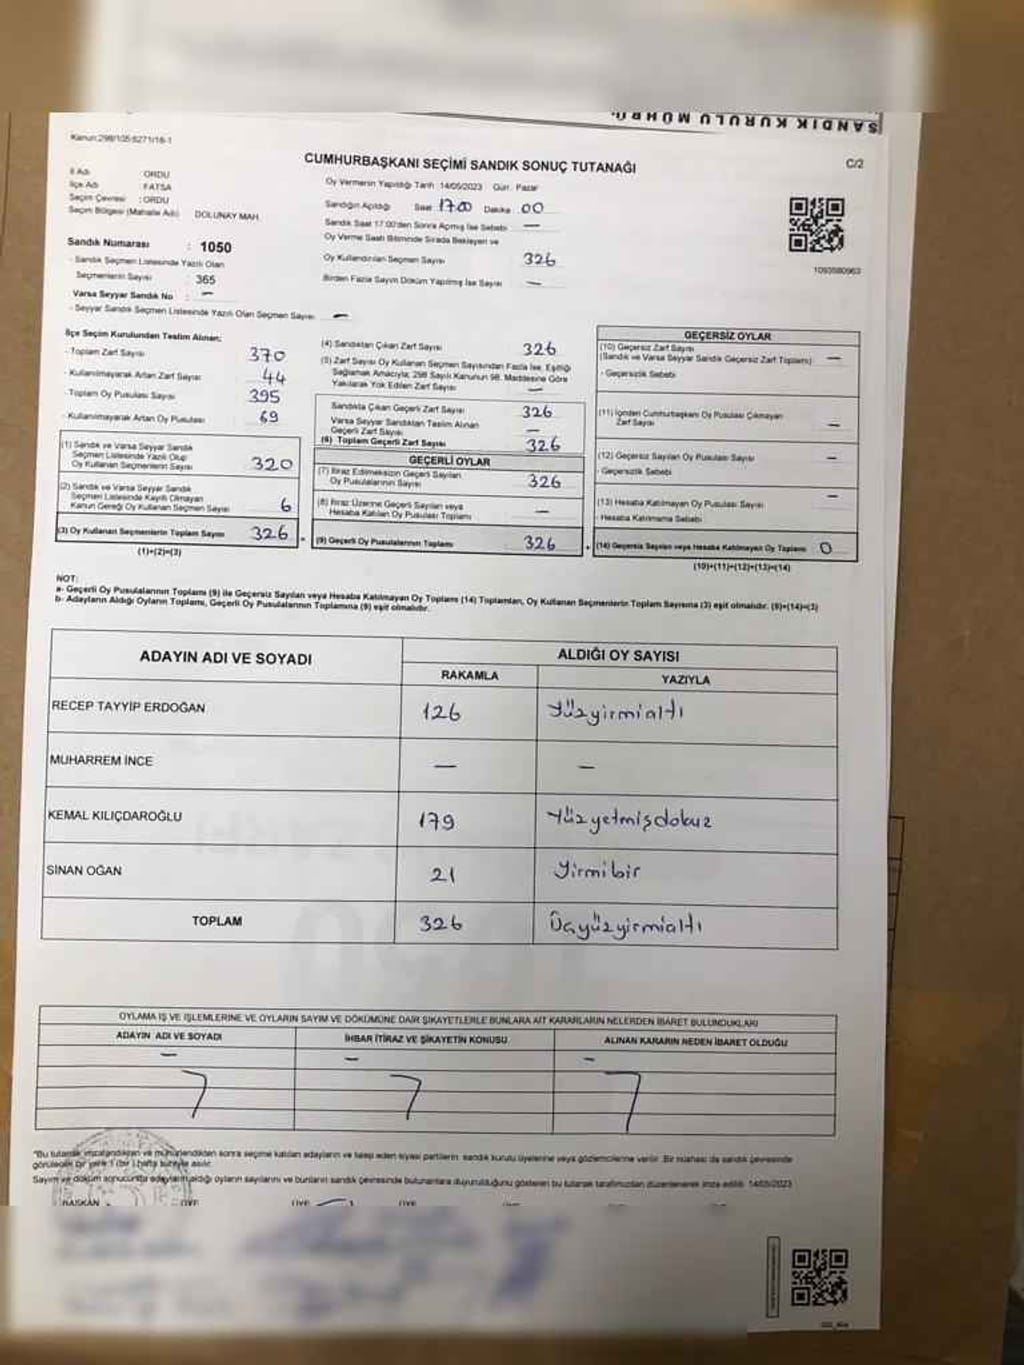 SANDIK KURULU MÜHRÜ
Kanun:298/105-6271/16-1
CUMHURBAŞKANI SEÇİMİ SANDIK SONUÇ TUTANAĞI
C/2
İl Adı : ORDU
İlçe Adı : FATSA
Seçim Çevresi : ORDU
Seçim Bölgesi (Mahalle Adı) DOLUNAY MAH.
Oy Vermenin Yapıldığı Tarih: 14/05/2023 Gün: Pazar
Sandığın Açıldığı Saat 17.00 Dakika 00
Sandık Saat 17:00'den Sonra Açmış İse Sebebi —
Oy Verme Saati Bitiminde Sırada Bekleyen ve
Oy Kullandırılan Seçmen Sayısı 326
Birden Fazla Sayım Döküm Yapılmış İse Sayısı —
1093580963
Sandık Numarası : 1050
- Sandık Seçmen Listesinde Yazılı Olan
Seçmenlerin Sayısı 365
Varsa Seyyar Sandık No : —
- Seyyar Sandık Seçmen Listesinde Yazılı Olan Seçmen Sayısı: —
İlçe Seçim Kurulundan Teslim Alınan;
- Toplam Zarf Sayısı 370
- Kullanılmayarak Artan Zarf Sayısı 44
- Toplam Oy Pusulası Sayısı 395
- Kullanılmayarak Artan Oy Pusulası 69
(1) Sandık ve Varsa Seyyar Sandık
Seçmen Listesinde Yazılı Olup
Oy Kullanan Seçmenlerin Sayısı 320
(2) Sandık ve Varsa Seyyar Sandık
Seçmen Listesinde Kayıtlı Olmayan
Kanun Gereği Oy Kullanan Seçmen Sayısı 6
(3) Oy Kullanan Seçmenlerin Toplam Sayısı 326
(1)+(2)=(3)
(4) Sandıktan Çıkan Zarf Sayısı 326
(5) Zarf Sayısı Oy Kullanan Seçmen Sayısından Fazla İse, Eşitliği
Sağlamak Amacıyla; 298 Sayılı Kanunun 98. Maddesine Göre
Yakılarak Yok Edilen Zarf Sayısı —
Sandıkta Çıkan Geçerli Zarf Sayısı 326
Varsa Seyyar Sandıktan Teslim Alınan
Geçerli Zarf Sayısı —
(6) Toplam Geçerli Zarf Sayısı 326
GEÇERLİ OYLAR
(7) İtiraz Edilmeksizin Geçerli Sayılan
Oy Pusulalarının Sayısı 326
(8) İtiraz Üzerine Geçerli Sayılan veya
Hesaba Katılan Oy Pusulası Toplamı —
(9) Geçerli Oy Pusulalarının Toplamı 326
GEÇERSİZ OYLAR
(10) Geçersiz Zarf Sayısı
(Sandık ve Varsa Seyyar Sandık Geçersiz Zarf Toplamı) —
- Geçersizlik Sebebi
(11) İçinden Cumhurbaşkanı Oy Pusulası Çıkmayan
Zarf Sayısı —
(12) Geçersiz Sayılan Oy Pusulası Sayısı —
- Geçersizlik Sebebi
(13) Hesaba Katılmayan Oy Pusulası Sayısı —
- Hesaba Katılmama Sebebi
(14) Geçersiz Sayılan veya Hesaba Katılmayan Oy Toplamı 0
(10)+(11)+(12)+(13)=(14)
NOT:
a- Geçerli Oy Pusulalarının Toplamı (9) ile Geçersiz Sayılan veya Hesaba Katılmayan Oy Toplamı (14) Toplamları, Oy Kullanan Seçmenlerin Toplam Sayısına (3) eşit olmalıdır. (9)+(14)=(3)
b- Adayların Aldığı Oyların Toplamı, Geçerli Oy Pusulalarının Toplamına (9) eşit olmalıdır.
ADAYIN ADI VE SOYADI
ALDIĞI OY SAYISI
RAKAMLA YAZIYLA
RECEP TAYYİP ERDOĞAN 126 Yüzyirmialtı
MUHARREM İNCE — —
KEMAL KILIÇDAROĞLU 179 Yüzyetmişdokuz
SİNAN OĞAN 21 Yirmibir
TOPLAM 326 Üçyüzyirmialtı
OYLAMA İŞ VE İŞLEMLERİNE VE OYLARIN SAYIM VE DÖKÜMÜNE DAİR ŞİKAYETLERLE BUNLARA AİT KARARLARIN NELERDEN İBARET BULUNDUKLARI
ADAYIN ADI VE SOYADI İHBAR İTİRAZ VE ŞİKAYETİN KONUSU ALINAN KARARIN NEDEN İBARET OLDUĞU
— — —
"Bu tutanak imzalandıktan ve mühürlendikten sonra seçime katılan adayların ve talep eden siyasi partilerin sandık kurulu üyelerine veya gözlemcilerine verilir. Bir nüshası da sandık çevresinde
görülecek bir yere 1 (bir) hafta süreyle asılır.
Sayım ve döküm sonucunda adayların aldığı oyların sayılarını ve bunların sandık çevresinde bulunanlara duyurulduğunu gösteren bu tutanak tarafımızdan düzenlenerek imza edildi. 14/05/2023
BAŞKAN ÜYE ÜYE ÜYE